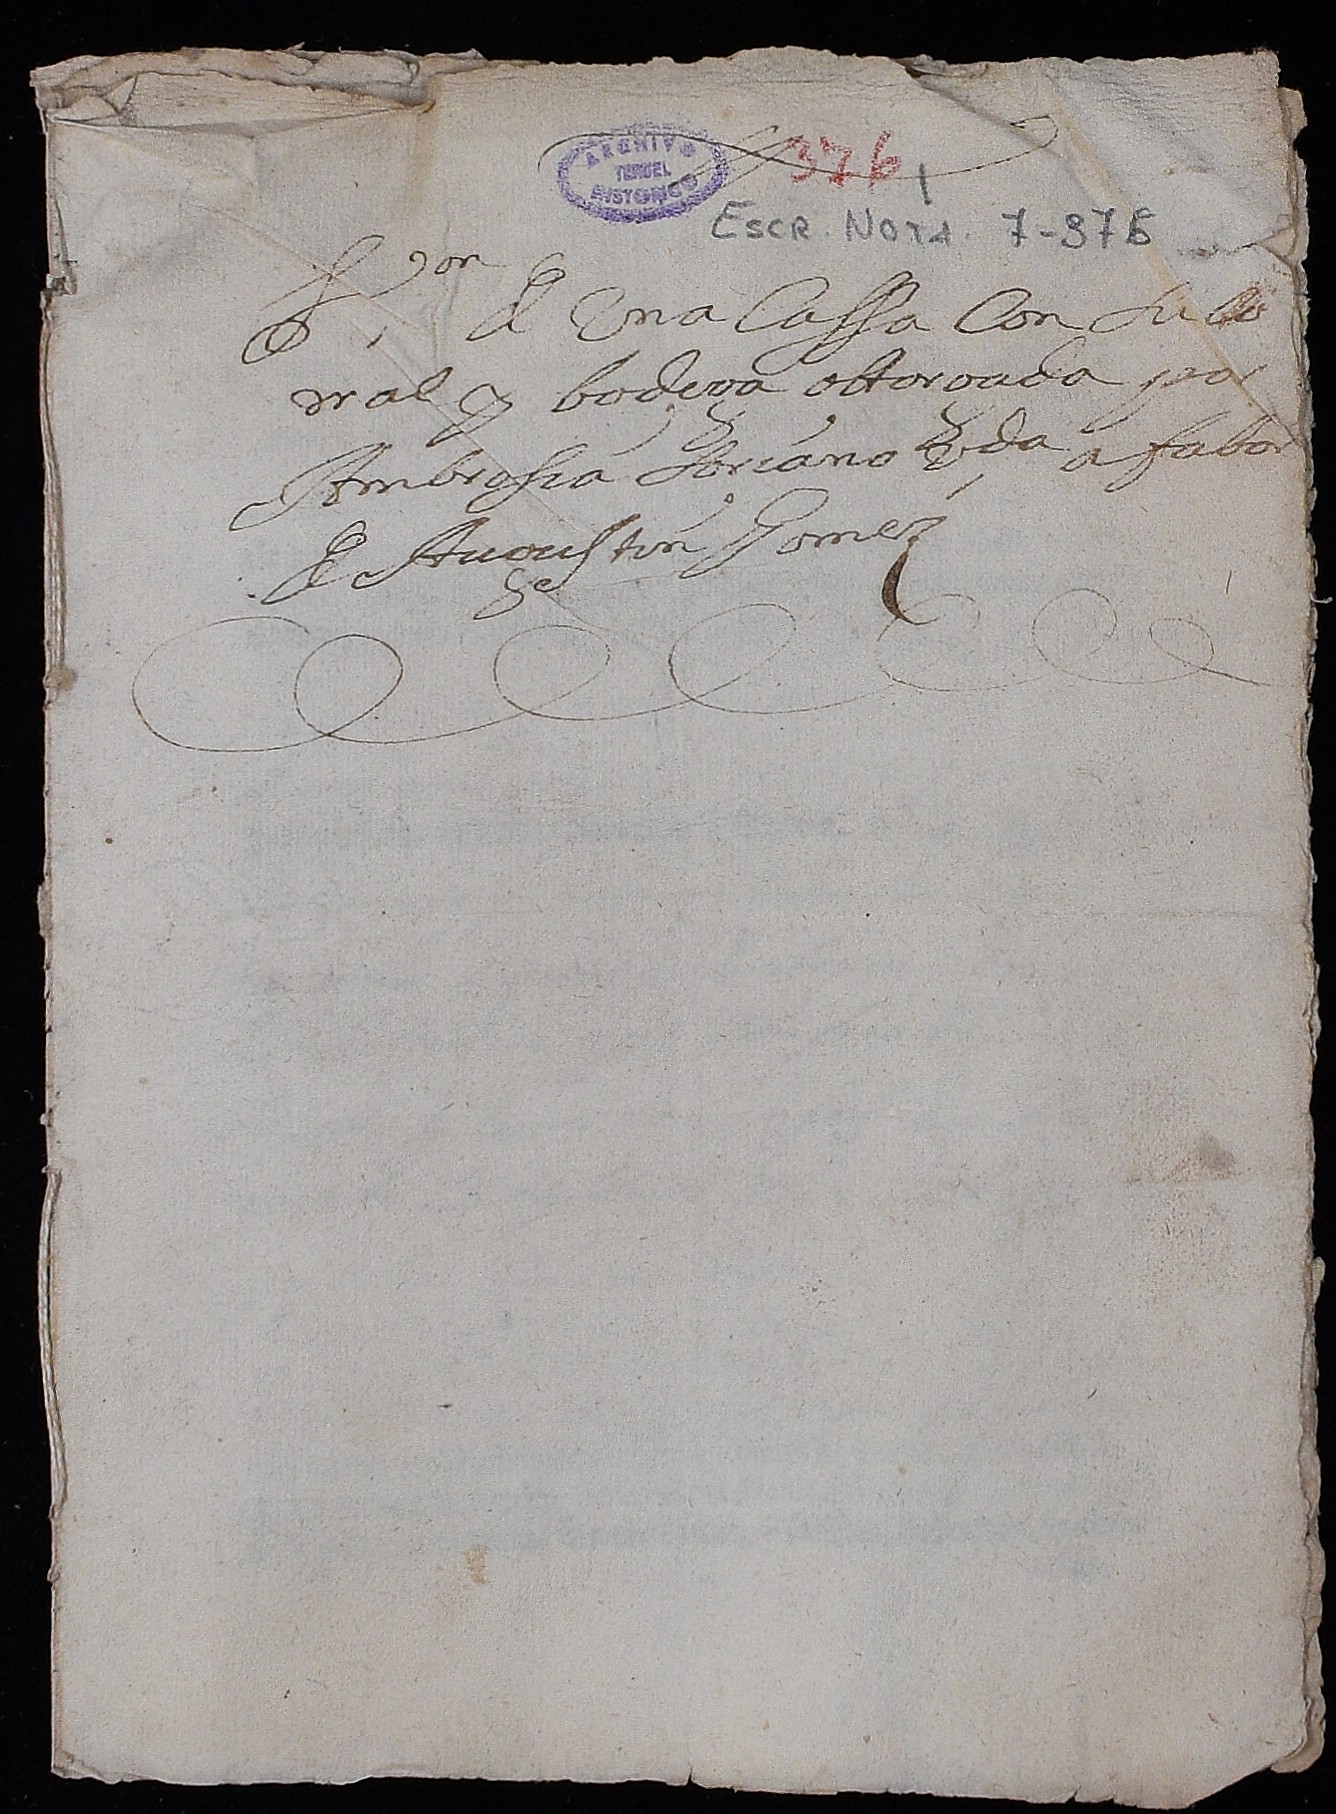 ARCHIVO
TERUEL
HISTORICO
376
ESCR. NOTA. 7-376
on de Una Cassa Con su Co
rral y bodega ottorgada por
Ambrosia Soriano Vda a fabor
de Augustin Gomez